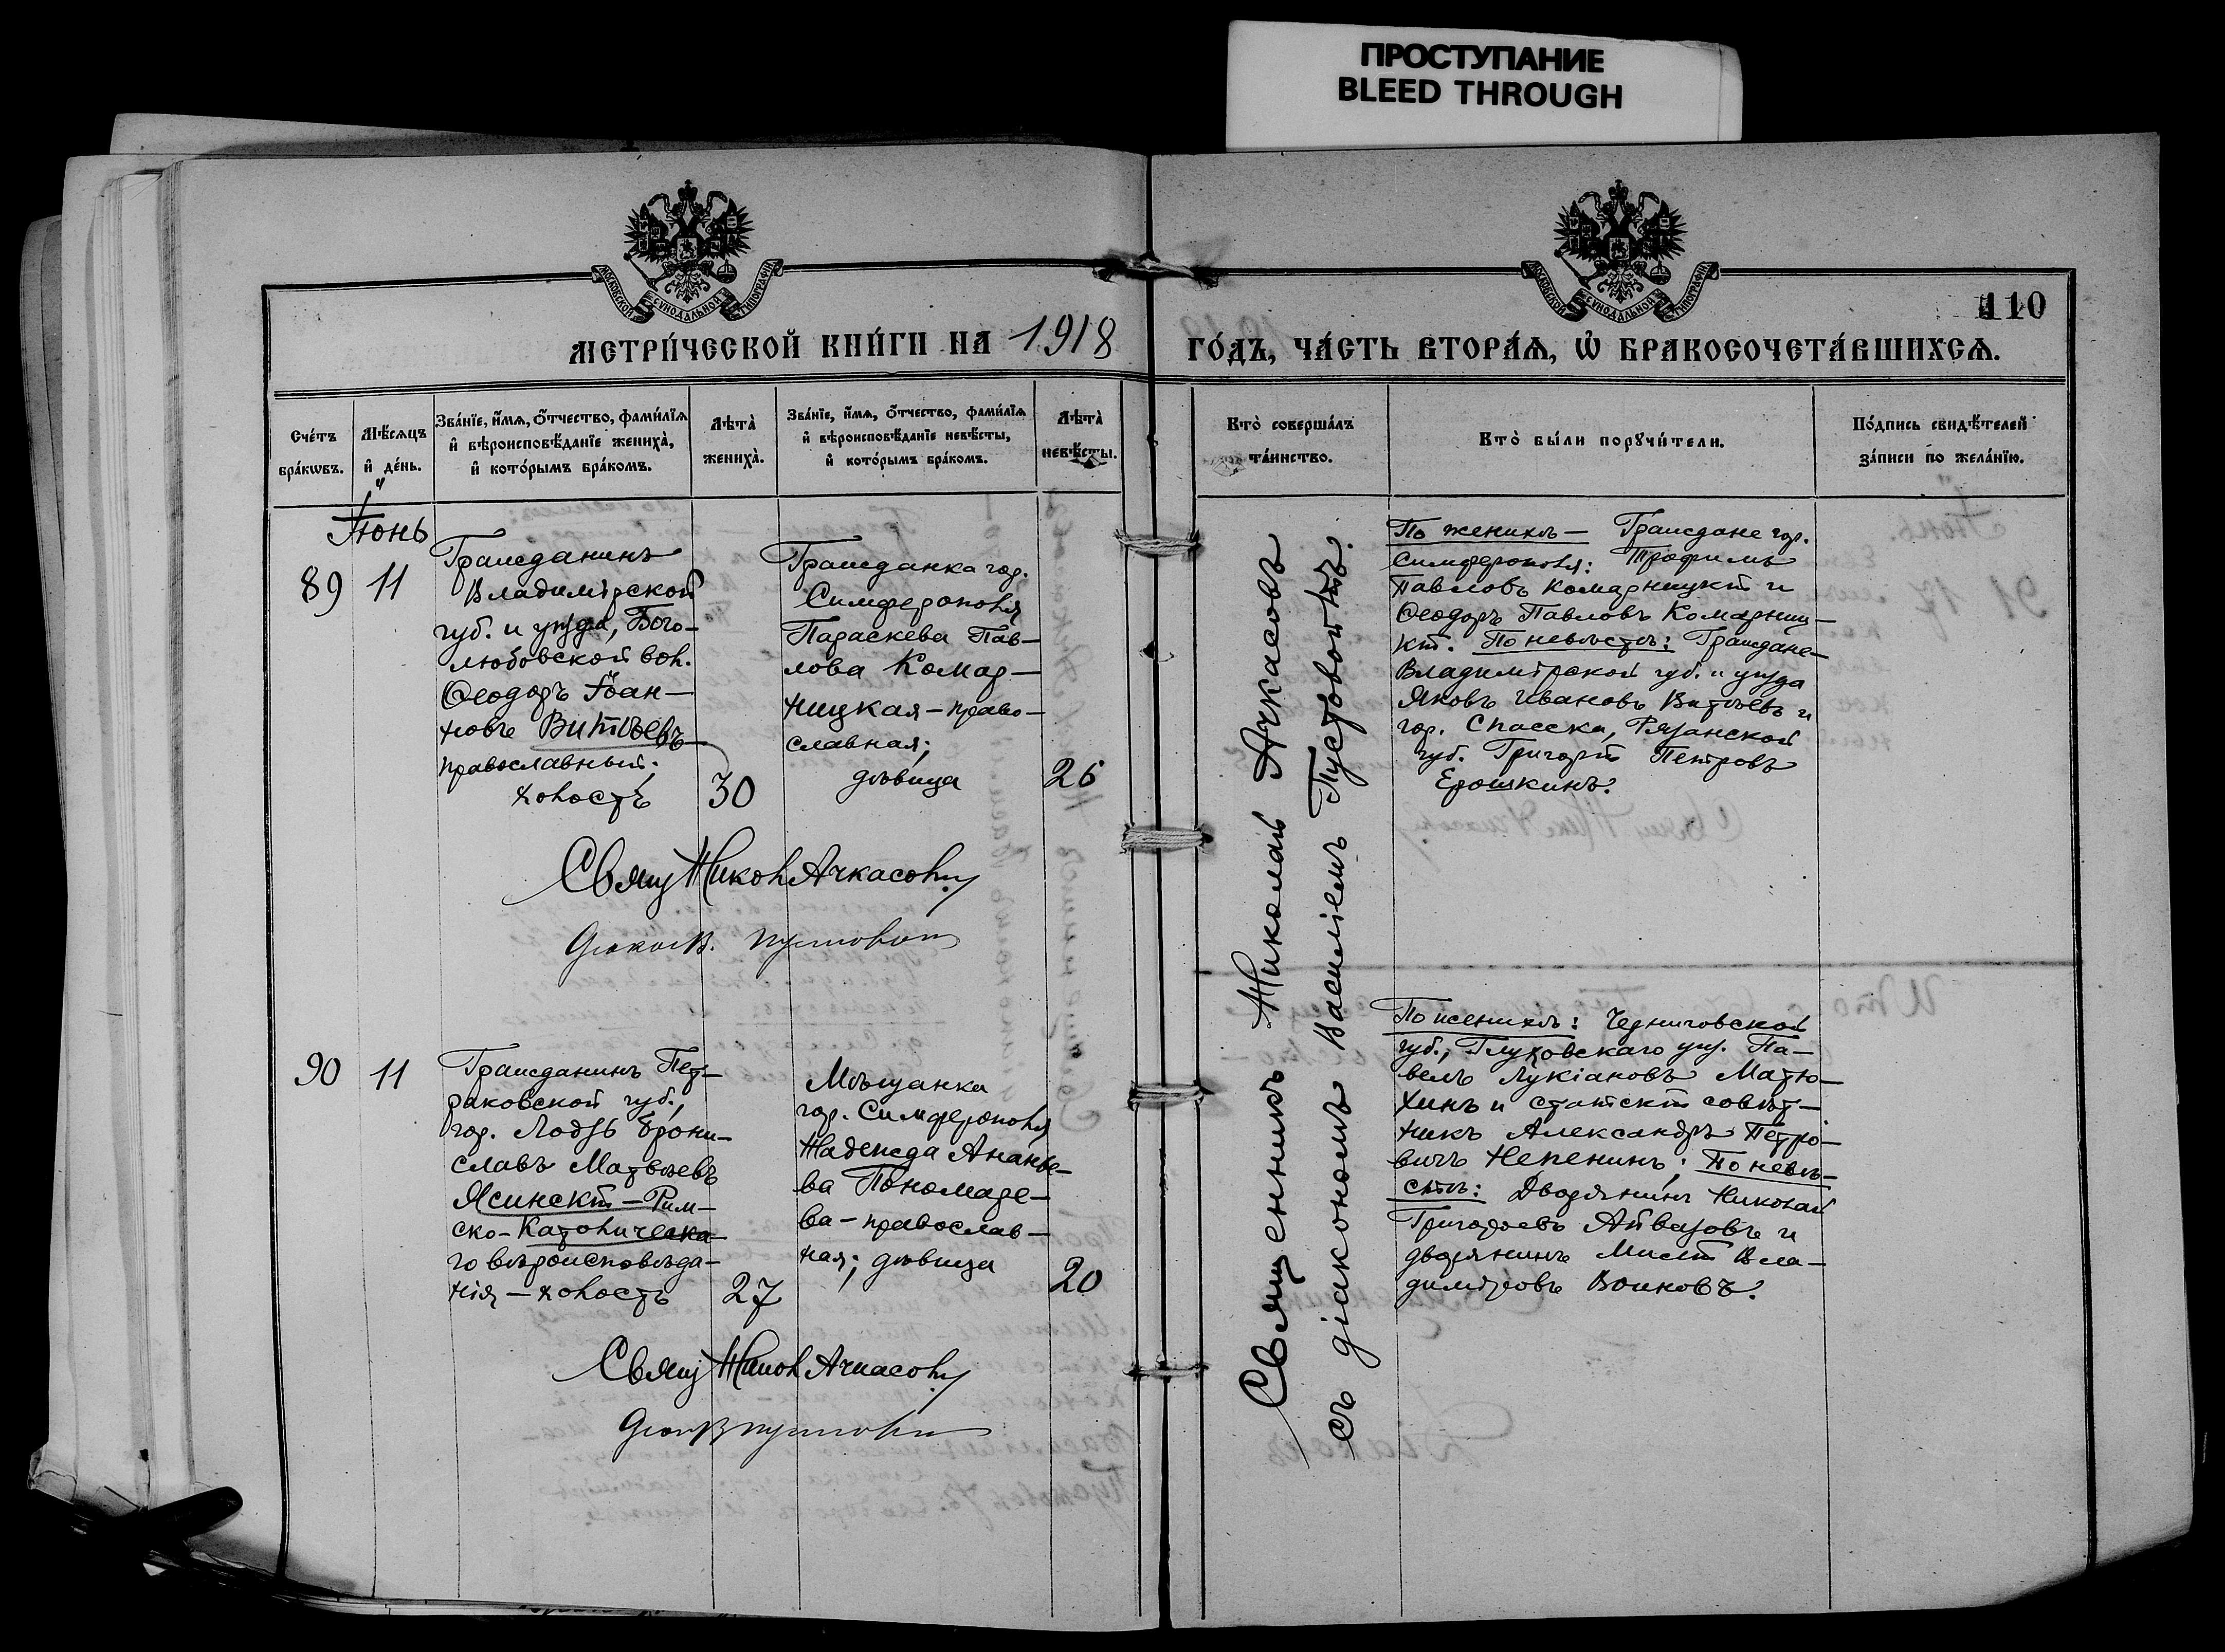 ПРОСТУПАНИЕ
BLEED THROUGH
МОСКОВСКОЙ СѴНОДАЛЬНОЙ ТИПОГРАФІИ
МОСКОВСКОЙ СѴНОДАЛЬНОЙ ТИПОГРАФІИ
110
МЕТРИ́ЧЕСКОЙ КНИ́ГИ НА 1918
ГО́ДЪ, ЧА́СТЬ ВТОРА́Ѧ, Ѡ҆ БРАКОСОЧЕТА́ВШИХСѦ.
Сче́тъ
бра́кѡвъ.
Мѣ́сѧцъ
и҆ де́нь.
Зва́нїе, и҆́мѧ, ѻ҆́тчество, фами́лїѧ
и҆ вѣроисповѣ́данїе жениха̀,
и҆ кото́рымъ бра́комъ.
Лѣта̀
жениха̀.
Зва́нїе, и҆́мѧ, ѻ҆́тчество, фами́лїѧ
и҆ вѣроисповѣ́данїе невѣ́сты,
и҆ кото́рымъ бра́комъ.
Лѣта̀
невѣ́сты.
Кто̀ соверша́лъ
та́инство.
Кто̀ бы́ли порꙋчи́тели.
По́дпись свидѣ́телей
за́писи по жела́нїю.
Іюнь
89
11
Гражданинъ
Владимірской
губ. и уѣзда, Бого-
любовской вол.
Ѳеодоръ Іоан-
новъ Витѣевъ
православный;
холостъ
30
Гражданка гор.
Симферополя
Параскева Пав-
лова Комар-
ницкая - право-
славная;
дѣвица
26
Свящ Никол Ачкасовъ
Діакон В. Пустовой
Священникъ Николай Ачкасовъ
съ діакономъ Василіемъ Пустовойтъ.
По женихѣ — Граждане гор.
Симферополя: Трофимъ
Павловъ Комарницкій и
Ѳеодоръ Павловъ Комарниц-
кій. По невѣстѣ: Граждане-
Владимірской губ. и уѣзда
Яковъ Ивановъ Витѣевъ и
гор. Спасска, Рязанской
губ. Григорій Петровъ
Ерошкинъ.
90
11
Гражданинъ Пет-
раковской губ.,
гор. Лодзь Брони-
славъ Матвѣевъ
Ясинскій — Рим-
ско-Католическа-
го вѣроисповѣда-
нія — холостъ
27
Мѣщанка
гор. Симферополя
Надежда Ананье-
ва Пономаре-
ва - православ-
ная; дѣвица
20
Свящ Никол Ачкасовъ
Діак В Пустовой
По женихѣ: Черниговской
губ., Глуховскаго уѣз. Па-
велъ Лукіановъ Матю-
хинъ и статскій совѣт-
никъ Александръ Петро-
вичъ Непенинъ; По невѣ-
стѣ: Дворянинъ Николай
Григорьевъ Айвазовъ и
дворянинъ Вла-
диміровъ Воиновъ.